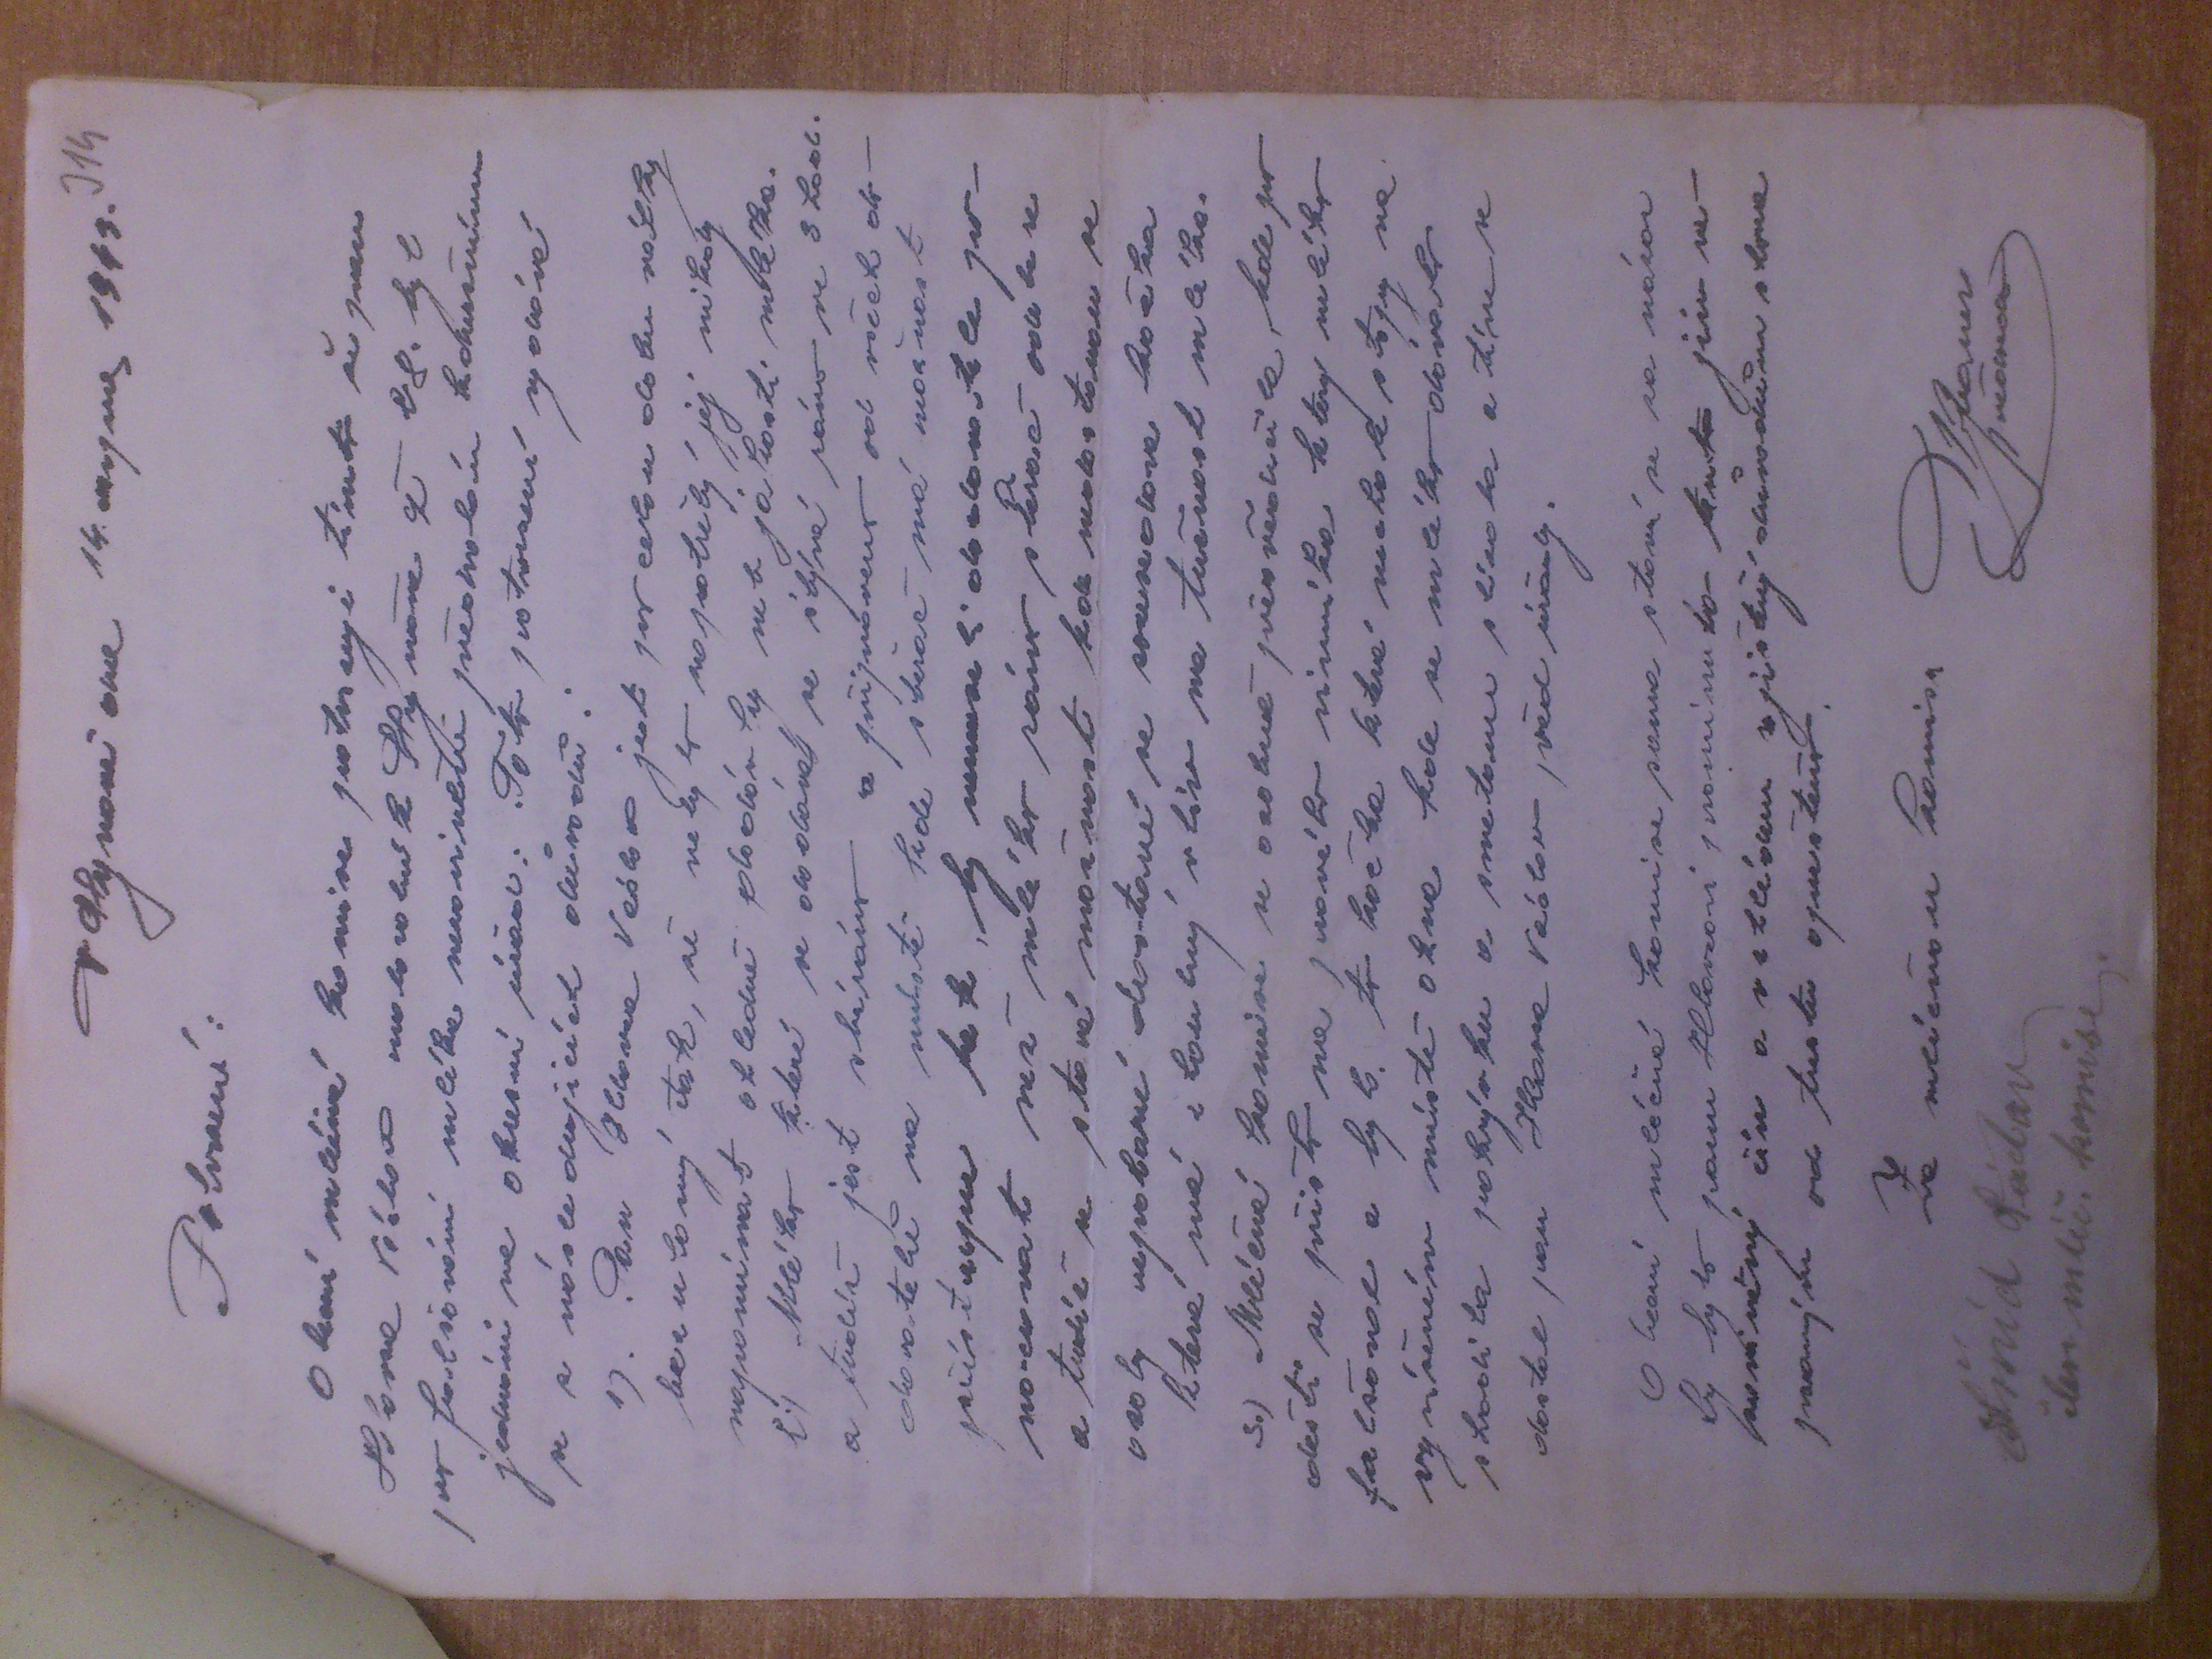 V Hlynově dne 14. srpna 1943. 314
Potvrzení:
Obecní mléčná komise potvrzuje tímto že pan
Hlavsa Václav malorolník Hlynova č 28. byl
pro falšování mléka nezaviněně předvolán k dnešnímu
jednání na okresní úřad. Toto potvrzení vydává
se z následujících důvodů:
1). Pan Hlavsa Václav jest po celou dobu války
bezúhoný tak, že nebylo zapotřebý jej nikdy
napomínat ohledně dodávky neb jakosti mléka.
2) Mléko které se dodává se slývá ráno ve 3 hod.
a tudíž jest sbíráno a připraveno od všech do-
davatelů na místě kde sběrač má možnost
přístupu tak, by nemuseli dodavatele po-
nocovat než mléko ráno sběrač odebere
a tudíž se stává možnost kde nedostanou se
osoby nepovolané dostane se sousedova kočka
která má z loudný vliv na tučnost mléka.
3.) Mléčná komise se osobně přesvědčila, kde po
dešti se přišlo na pravého viníka který mléko
falšoval a byla to kočka která nechala stopy na
vyvíšeném místě okna kde se mléko dávalo
shodila pokrývku a smetanu slízala a tím se
dostal pan Hlavsa Václav před úřady.
Obecní mléčná komise sama staví se za názor
by bylo panu Hlavsovi prominuto tento jím ne-
zaviněný čin a vzhledem zjištěný důvodům shora
psaným od trestu opuštěno.
Za mléčnou komisi
předseda
Šmíd Václav
člen mléč. komise.